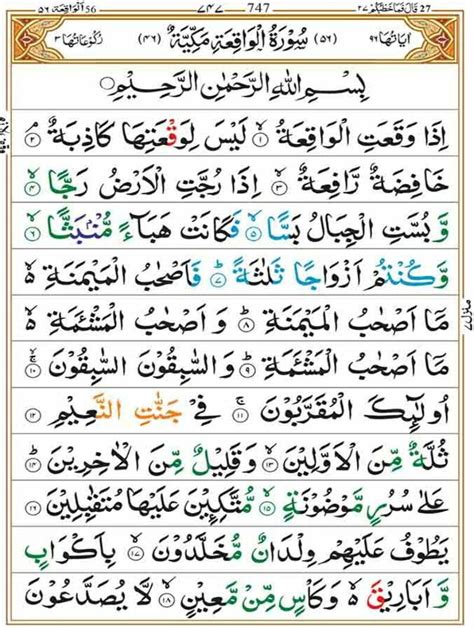 ٥٦ الواقعة 56 ٧٤٧ 747 قال فما خطبكم ٢٧ 27
رکوعاتها ٣ (٥٦) سُوْرَةُ الْوَاقِعَةِ مَكِّيَّةٌ (٤٦) اٰیاتها ٩٦
بِسْمِ اللّٰهِ الرَّحْمٰنِ الرَّحِيْمِ
اِذَا وَقَعَتِ الْوَاقِعَةُ ۙ‏ ١ لَيْسَ لِوَقْعَتِهَا كَاذِبَةٌ ۘ‏ ٢
خَافِضَةٌ رَّافِعَةٌ ۙ‏ ٣ اِذَا رُجَّتِ الْاَرْضُ رَجًّا ۙ‏ ٤
وَّبُسَّتِ الْجِبَالُ بَسًّا ۙ‏ ٥ فَكَانَتْ هَبَآءً مُّنْۢبَثًّا ۙ‏ ٦
وَّكُنْتُمْ اَزْوَاجًا ثَلٰثَةً ؕ‏ ٧ فَاَصْحٰبُ الْمَيْمَنَةِ ۙ
مَاۤ اَصْحٰبُ الْمَيْمَنَةِ ؕ‏ ٨ وَاَصْحٰبُ الْمَشْـَٔمَةِ ۙ
مَاۤ اَصْحٰبُ الْمَشْـَٔمَةِ ؕ‏ ٩ وَالسّٰبِقُوْنَ السّٰبِقُوْنَ ۚ ۙ‏ ١٠
اُولٰٓئِكَ الْمُقَرَّبُوْنَ ۚ‏ ١١ فِيْ جَنّٰتِ النَّعِيْمِ ١٢
ثُلَّةٌ مِّنَ الْاَوَّلِيْنَ ۙ‏ ١٣ وَقَلِيْلٌ مِّنَ الْاٰخِرِيْنَ ؕ‏ ١٤
عَلٰى سُرُرٍ مَّوْضُوْنَةٍ ۙ‏ ١٥ مُّتَّكِـِٕيْنَ عَلَيْهَا مُتَقٰبِلِيْنَ ١٦
يَطُوْفُ عَلَيْهِمْ وِلْدَانٌ مُّخَلَّدُوْنَ ۙ‏ ١٧ بِاَكْوَابٍ
وَّاَبَارِيْقَ ۙ وَكَاْسٍ مِّنْ مَّعِيْنٍ ۙ‏ ١٨ لَّا يُصَدَّعُوْنَ